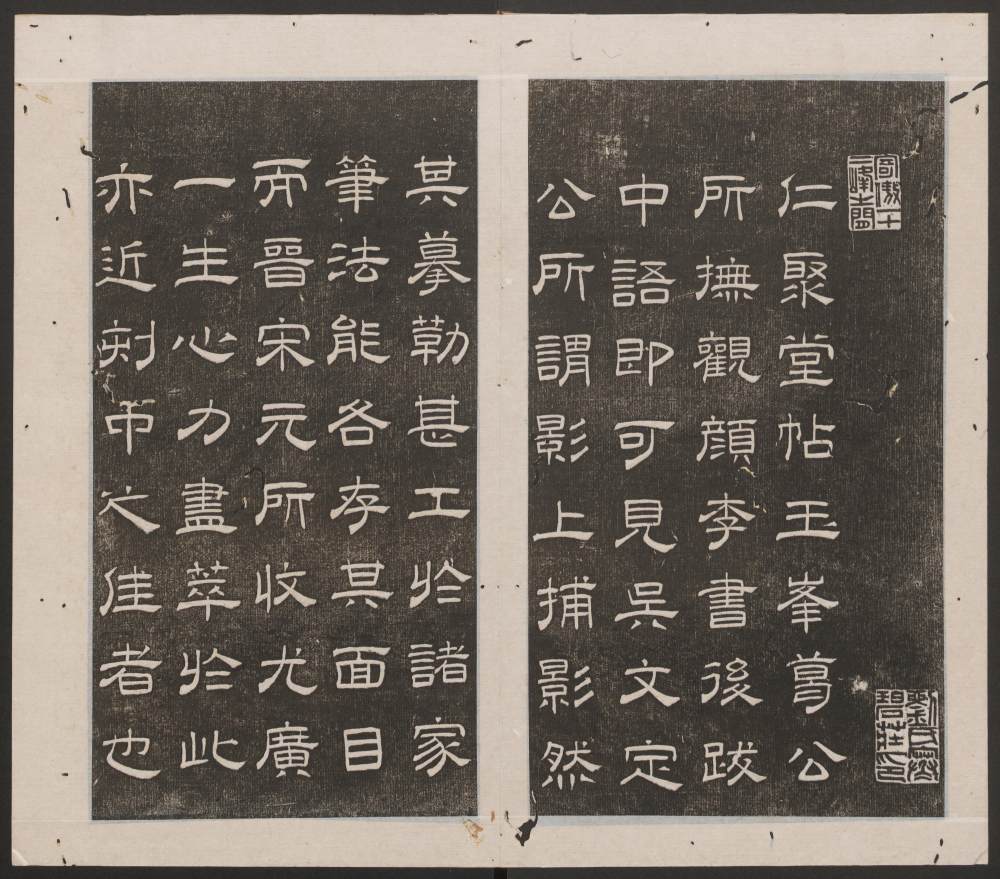 寄傲十二峰間
劉氏寒碧莊印
仁聚堂帖玉峯葛公
所撫觀顏李書後跋
中語即可見吳文定
公所謂影上捕影然
其摹勒甚工於諸家
筆法能各存其面目
兩晉宋元所收尤廣
一生心力盡萃於此
亦近刻中之佳者也